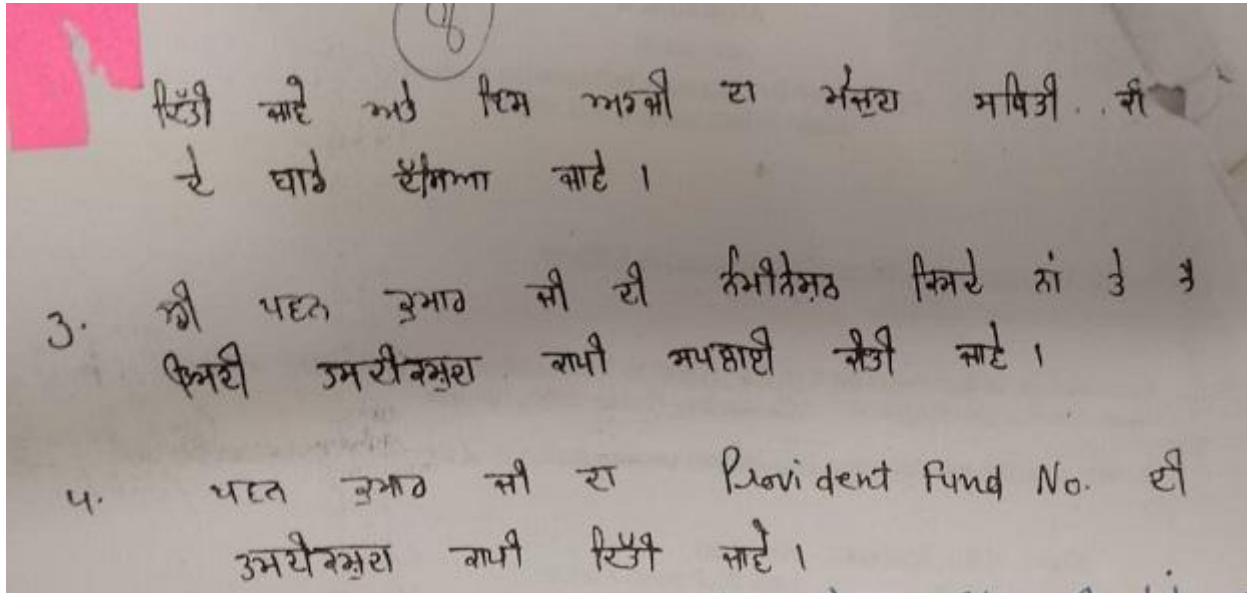 8
ਦਿੱਤੀ ਜਾਵੇ ਅਤੇ ਇਸ ਅਰਜੀ ਦਾ ਮੌਜੂਦਾ ਸਥਿਤੀ .. ਕੀ
ਦੇ ਬਾਰੇ ਦੱਸਿਆ ਜਾਵੇ ।
3. ਸ਼੍ਰੀ ਪਵਨ ਕੁਮਾਰ ਜੀ ਦੀ ਨੌਮੀਨੇਸ਼ਨ ਕਿਸਦੇ ਨਾਂ ਤੇ ਹੈ
ਇਸਦੀ ਤਸਦੀਕਸ਼ੁਦਾ ਕਾਪੀ ਸਪਲਾਈ ਕੀਤੀ ਜਾਵੇ ।
4. ਪਵਨ ਕੁਮਾਰ ਜੀ ਦਾ Provident Fund No. ਦੀ
ਤਸਦੀਕਸ਼ੁਦਾ ਕਾਪੀ ਦਿੱਤੀ ਜਾਵੇ ।